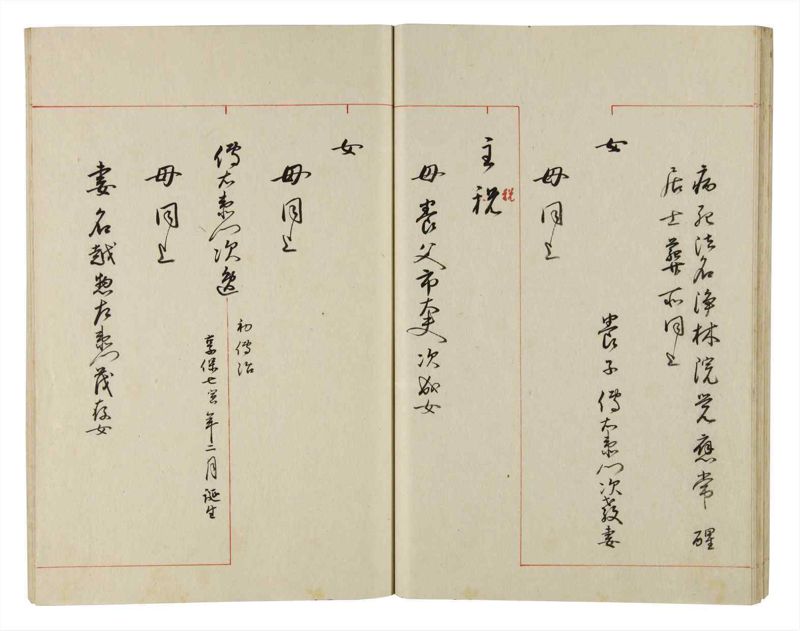 病死法名浄林院覚應常醒
居士葬所同上
女
養子傳右衛門次教妻
母同上
主税
税
母養父市太夫次成女
女
母同上
傳右衛門次遠
初傳治
享保七寅年二月誕生
母同上
妻名越惣左衛門茂存女